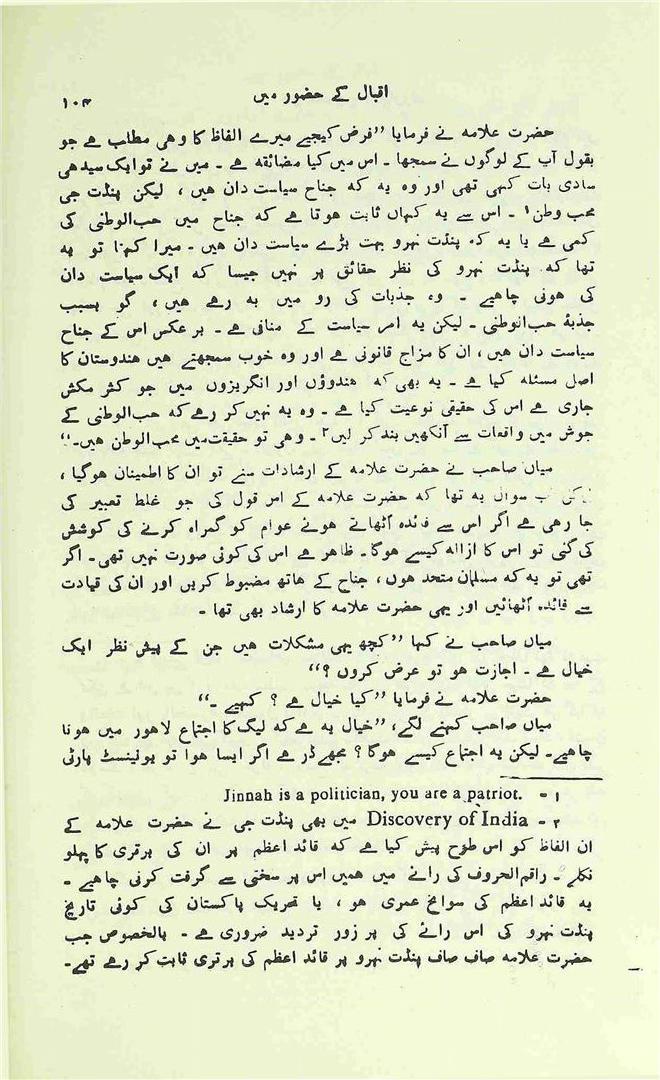 ۱۰۴ اقبال کے حضور میں
حضرت علامہ نے فرمایا ”فرض کیجیے میرے الفاظ کا وہی مطلب ہے جو
بقول آپ کے لوگوں نے سمجھا۔ اس میں کیا مضائقہ ہے۔ میں نے تو ایک سیدھی
سادی بات کہی تھی اور وہ یہ کہ جناح سیاست دان ہیں، لیکن پنڈت جی
محب وطن۱۔ اس سے یہ کہاں ثابت ہوتا ہے کہ جناح میں حب الوطنی کی
کمی ہے یا یہ کہ پنڈت نہرو بہت بڑے سیاست دان ہیں۔ میرا کہنا تو یہ
تھا کہ پنڈت نہرو کی نظر حقائق پر نہیں جیسا کہ ایک سیاست دان
کی ہونی چاہیے۔ وہ جذبات کی رو میں بہ رہے ہیں، گو بسبب
جذبۂ حب الوطنی۔ لیکن یہ امر سیاست کے منافی ہے۔ برعکس اس کے جناح
سیاست دان ہیں، ان کا مزاج قانونی ہے اور وہ خوب سمجھتے ہیں ہندوستان کا
اصل مسئلہ کیا ہے۔ یہ بھی کہ ہندوؤں اور انگریزوں میں جو کش مکش
جاری ہے اس کی حقیقی نوعیت کیا ہے۔ وہ یہ نہیں کر رہے کہ حب الوطنی کے
جوش میں واقعات سے آنکھیں بند کر لیں۲۔ وہی تو حقیقت میں محب الوطن ہیں۔“
میاں صاحب نے حضرت علامہ کے ارشادات سنے تو ان کا اطمینان ہوگیا،
سوال یہ تھا کہ حضرت علامہ کے اس قول کی جو غلط تعبیر کی
جا رہی ہے اگر اس سے فائدہ اٹھاتے ہوئے عوام کو گمراہ کرنے کی کوشش
کی گئی تو اس کا ازالہ کیسے ہوگا۔ ظاہر ہے اس کی کوئی صورت نہیں تھی۔ اگر
تھی تو یہ کہ مسلمان متحد ہوں، جناح کے ہاتھ مضبوط کریں اور ان کی قیادت
سے فائدہ اٹھائیں اور یہی حضرت علامہ کا ارشاد بھی تھا۔
میاں صاحب نے کہا ”کچھ یہی مشکلات ہیں جن کے پیش نظر ایک
خیال ہے۔ اجازت ہو تو عرض کروں؟“
حضرت علامہ نے فرمایا ”کیا خیال ہے؟ کہیے۔“
میاں صاحب کہنے لگے، ”خیال یہ ہے کہ لیگ کا اجتماع لاہور میں ہونا
چاہیے۔ لیکن یہ اجتماع کیسے ہوگا؟ مجھے ڈر ہے اگر ایسا ہوا تو یونینسٹ پارٹی
۱ - Jinnah is a politician, you are a patriot.
۲ - Discovery of India میں بھی پنڈت جی نے حضرت علامہ کے
ان الفاظ کو اس طرح پیش کیا ہے کہ قائد اعظم پر ان کی برتری کا پہلو
نکلے۔ راقم الحروف کی رائے میں ہمیں اس پر سختی سے گرفت کرنی چاہیے۔
یہ قائد اعظم کی سوانح عمری ہو، یا تحریک پاکستان کی کوئی تاریخ
پنڈت نہرو کی اس رائے کی پر زور تردید ضروری ہے۔ بالخصوص جب
حضرت علامہ صاف صاف پنڈت نہرو پر قائد اعظم کی برتری ثابت کر رہے تھے۔